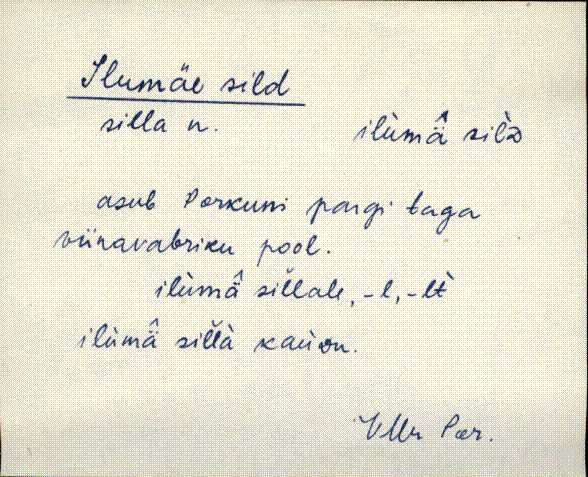 Ilumäe sild
silla n. ilùmä̂ silᴅ
asub Porkuni pargi taga
viinavabriku pool.
ilùmä̂ sil̆lale, -l, -lt̀
ilùmä̂ sil̆là
VMr